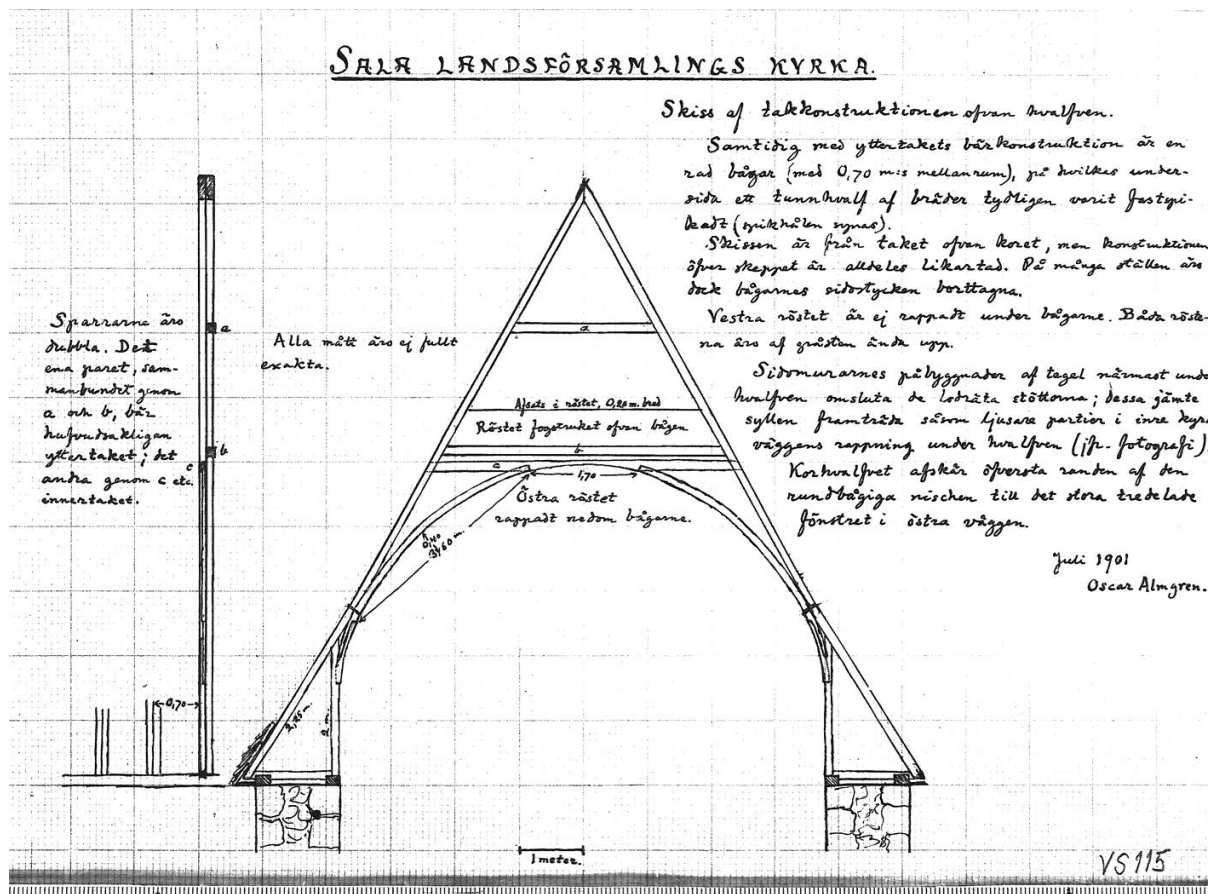 SALA LANDSFÖRSAMLINGS KYRKA.
Skiss af takkonstruktionen ofvan hvalfven.
Samtidig med yttertakets bärkonstruktion är en
rad bågar (med 0,70 m:s mellanrum), på hvilkas under-
sida ett tunnhvalf af bräder tydligen varit fastspi-
kadt (spikhålen synas).
Skissen är från taket ofvan koret, men konstruktionen
öfver skeppet är alldeles likartad. På många ställen äro
dock bågarnes sidostycken borttagna.
Vestra röstet är ej rappadt under bågarne. Båda röste-
na äro af gråsten ända upp.
Sidomurarnes påbyggnader af tegel närmast under
hvalfven omsluta de lodräta stöttorna; dessa jämte
syllen framträda såsom ljusare partier i inre kyrk
väggens rappning under hvalfven (jfr. fotografi).
Korhvalfvet afskär öfversta randen af den
rundbågiga nischen till det stora tredelade
fönstret i östra väggen.
Juli 1901
Oscar Almgren.
Sparrarne äro
dubbla. Det
ena paret, sam-
manbundet genom
a och b, bär
hufvudsakligen
yttertaket; det
andra genom c etc.
innertaket.
a
b
c
0,70
Alla mått äro ej fullt
exakta.
a
Afsats i röstet, 0,20 m. bred
Röstet fogstruket ofvan bågen
b
c
1,70
Östra röstet
rappadt nedom bågarne.
3,60 m.
2,25 m.
2 m.
1 meter.
VS 115